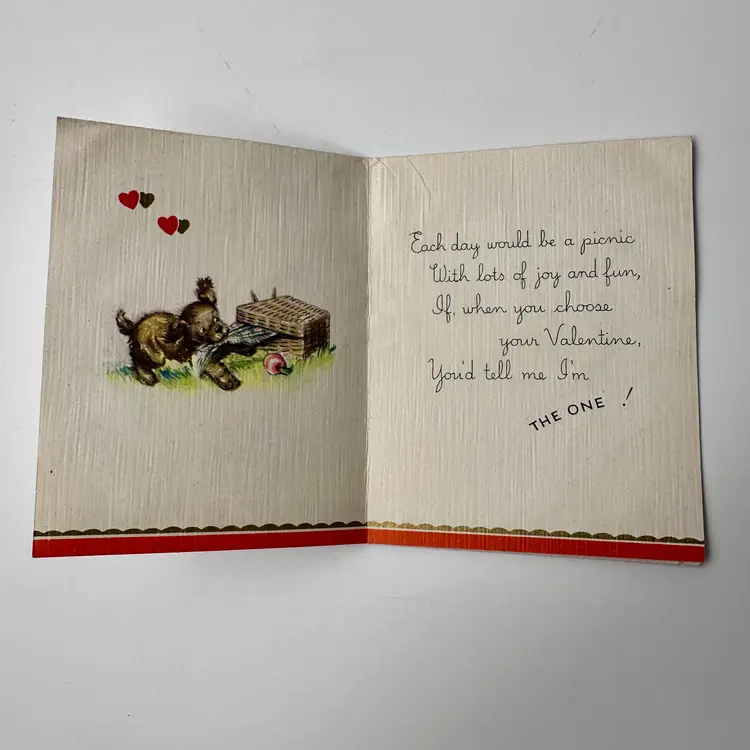 Each day would be a picnic
With lots of joy and fun,
If, when you choose
your Valentine,
You'd tell me I'm
THE ONE !